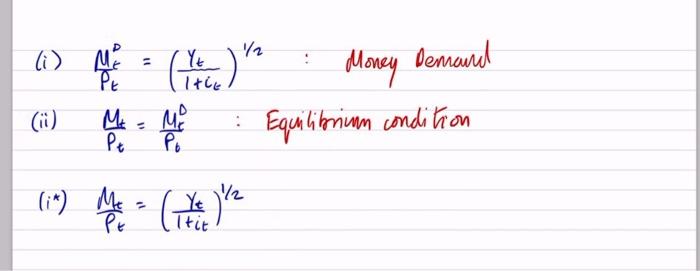 (i) M_t^D / P_t = (Y_t / 1+i_t)^1/2 : Money Demand
(ii) M_t / P_t = M_t^D / P_t : Equilibrium condition
(i*) M_t / P_t = (Y_t / 1+i_t)^1/2